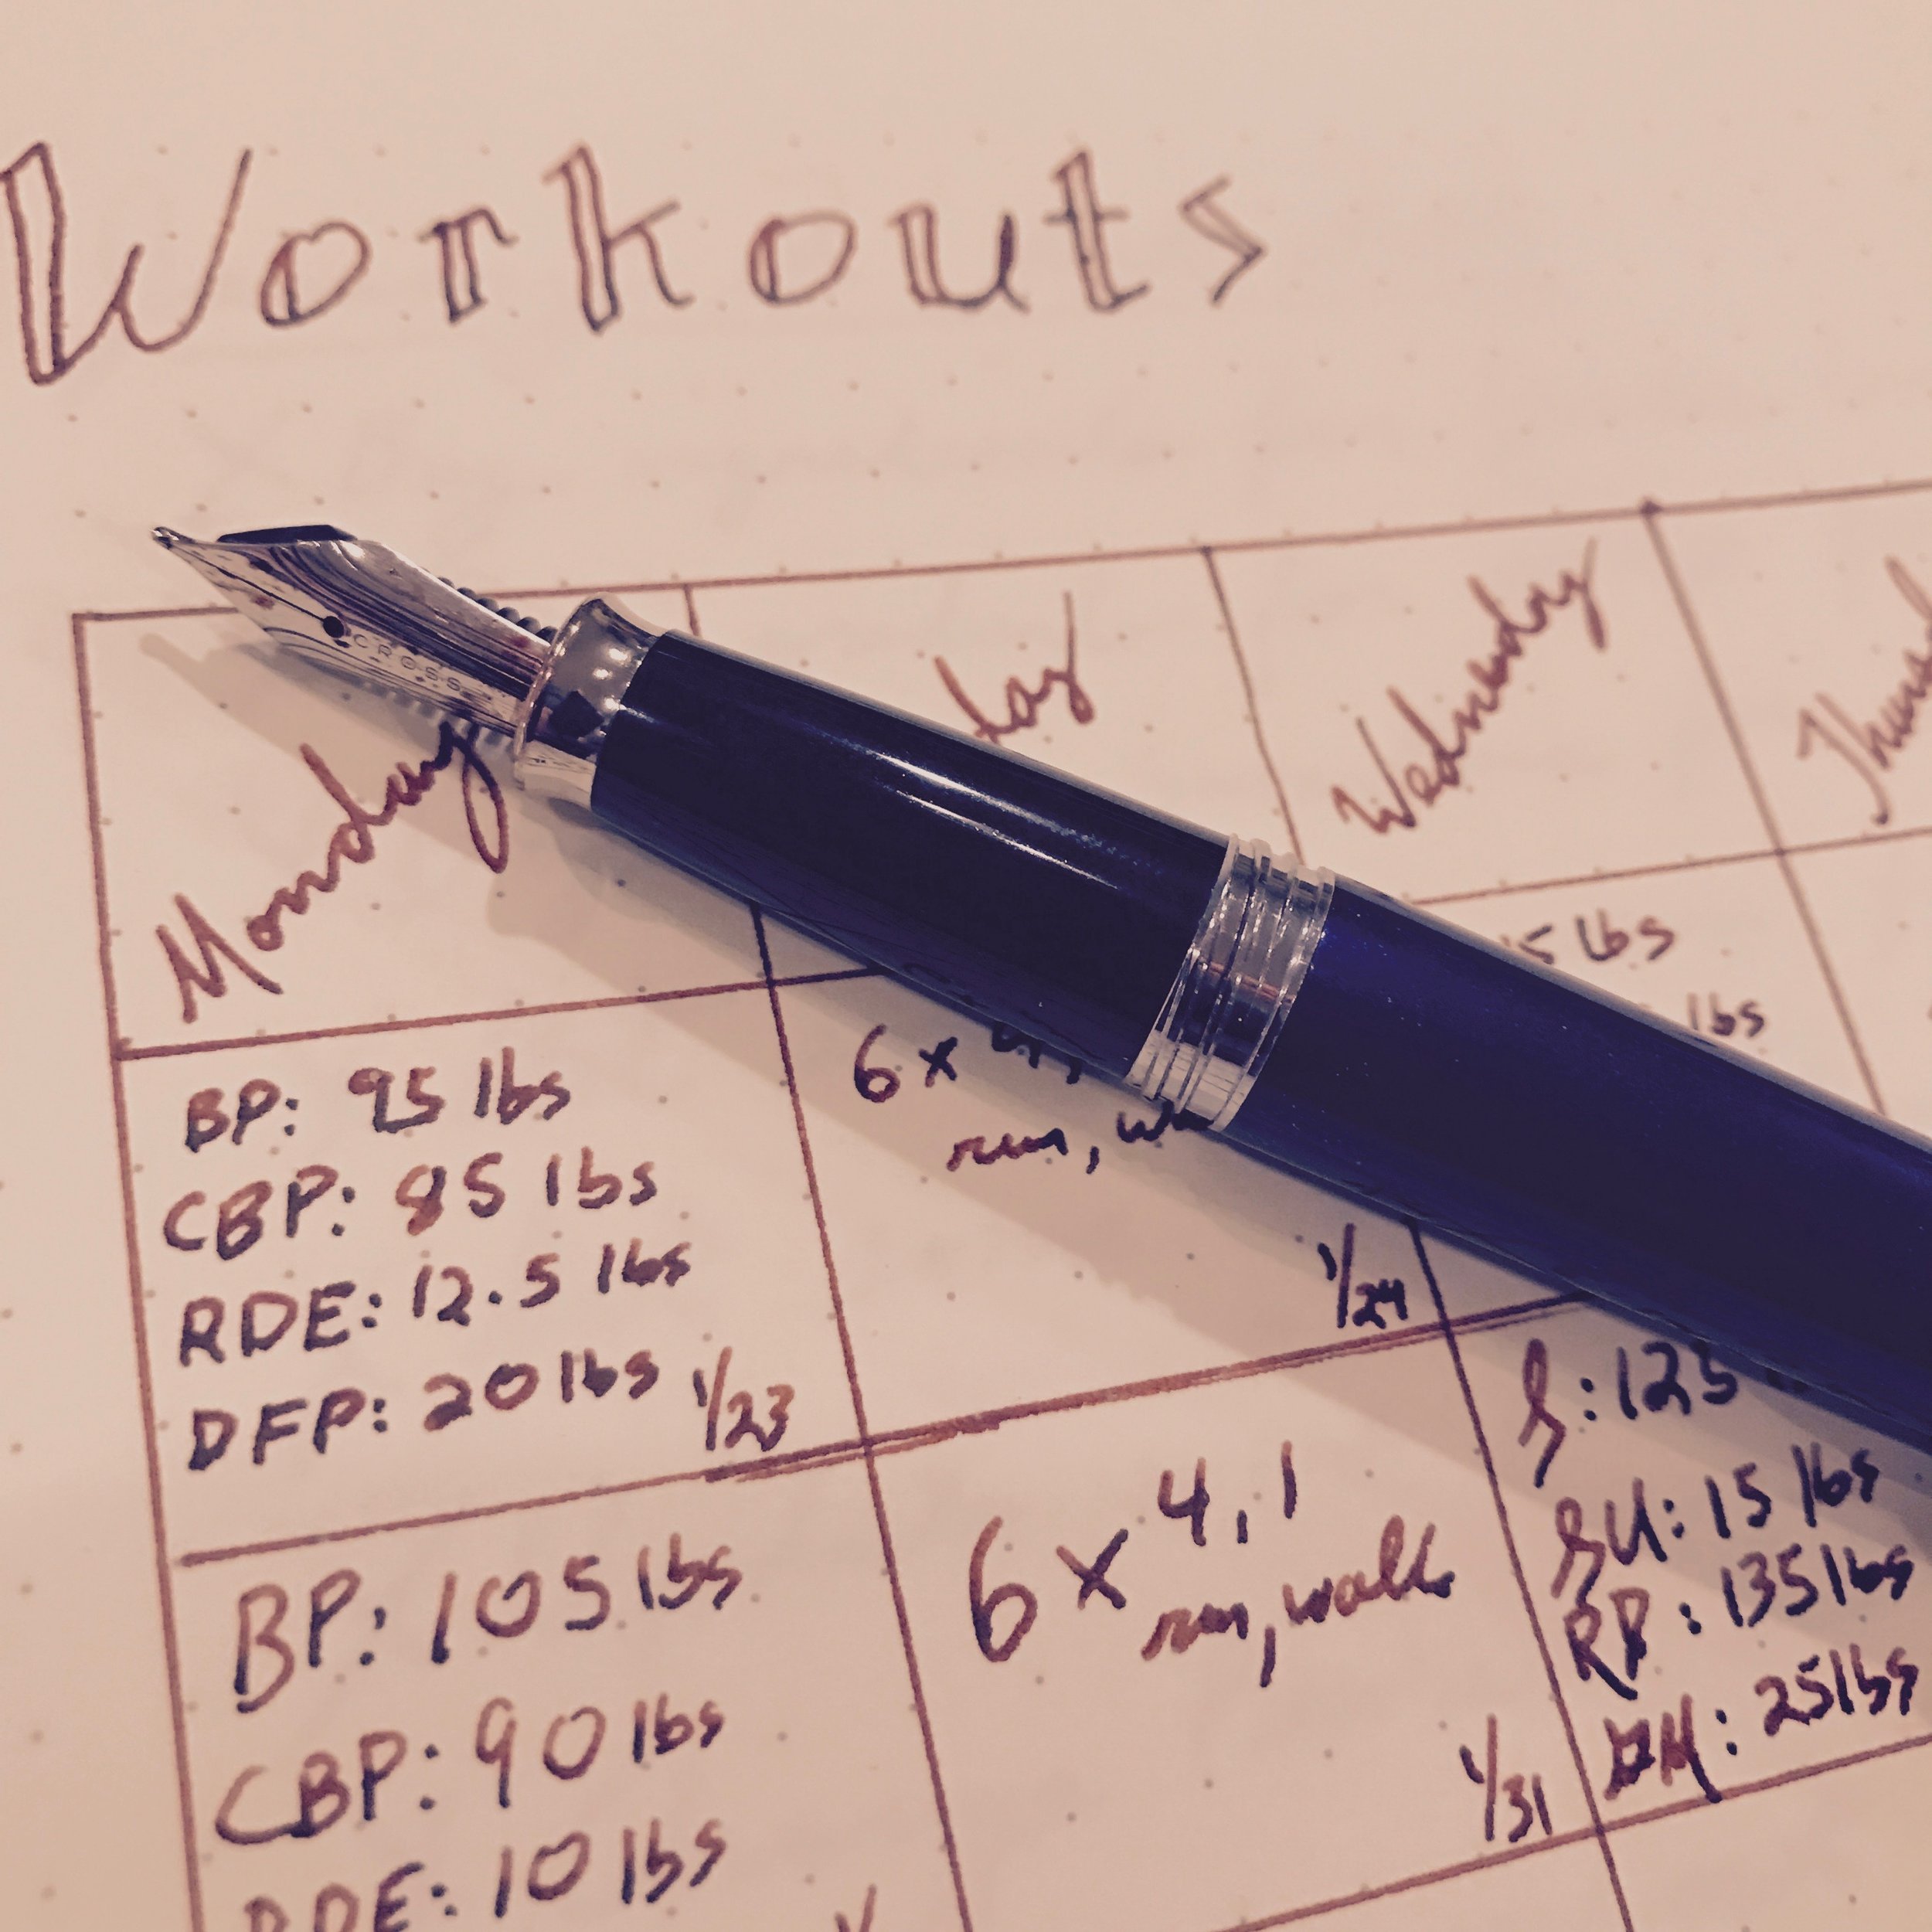 Workouts
CROSS
Monday
day
Wednesday
BP: 95 lbs
CBP: 85 lbs
RDE: 12.5 lbs
DFP: 20 lbs
1/23
6 x
run,
1/24
5 lbs
lbs
BP: 105 lbs
CBP: 90 lbs
RDE: 10 lbs
6 x 4, 1
run, walk
1/31
S: 125
SU: 15 lbs
RP: 135 lbs
25 lbs